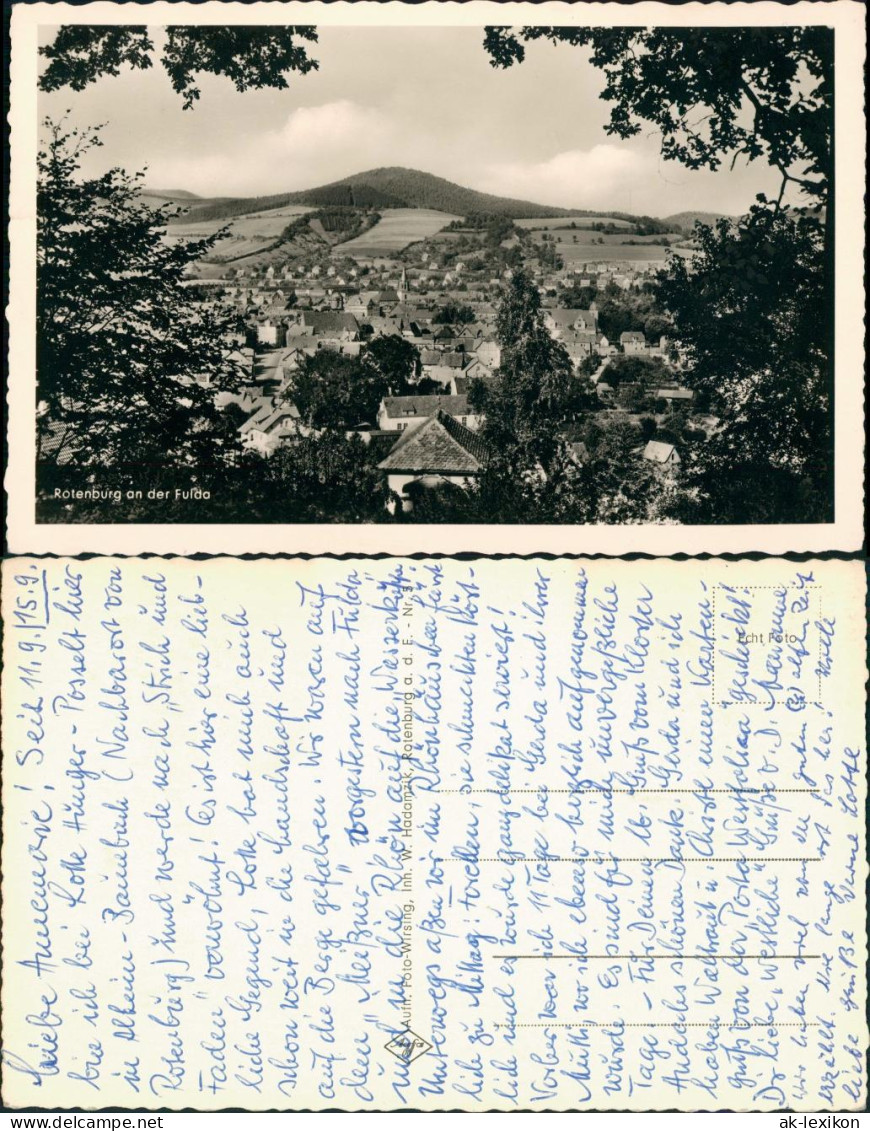 Rotenburg an der Fulda
11.9./15.9.
Liebe Annemarie! Seit
bin ich bei Lotte Hunger-Posselt hier
in Alheim-Baumbach (Nachbarort von
Rotenburg) und werde nach "Strich und
Faden" verwöhnt! Es ist hier eine lieb-
liche Gegend, Lotte hat mich auch
schon weit in die Landschaft und
auf die Berge gefahren. Wir waren auf
dem "Meißner", vorgestern nach Fulda
und in die Rhön auf die Wasserkuppe
Unterwegs aßen wir im Rhönhäuschen fürst-
lich zu Mittag: Forellen, sie schmeckten köst-
lich und es wurde ganz delikat serviert!
Vorher war ich 11 Tage bei Gerda und ihrer
Mutti, wo ich ebenso herzlich aufgenommen
wurde. Es sind für mich unvergeßliche
Tage. - Für Deinen lb. Gruß vom Kloster
Andechs schönen Dank. Gerda und ich
hieben Waltraut u. Christe einen Karten-
gruß von der Porta Westfalica geschickt!
Dir liebe, westliche Grüße v. D.
Wir haben viel von der guten (?) alten Zeit
erzählt. Wie lange ist das her!
liebe Grüße Deine Lotte
Aufn. Foto-Wirsing, Inh. W. Hadamzik, Rotenburg a. d. F. - Nr. 5
Agfa
Echt Foto
ak-lexikon